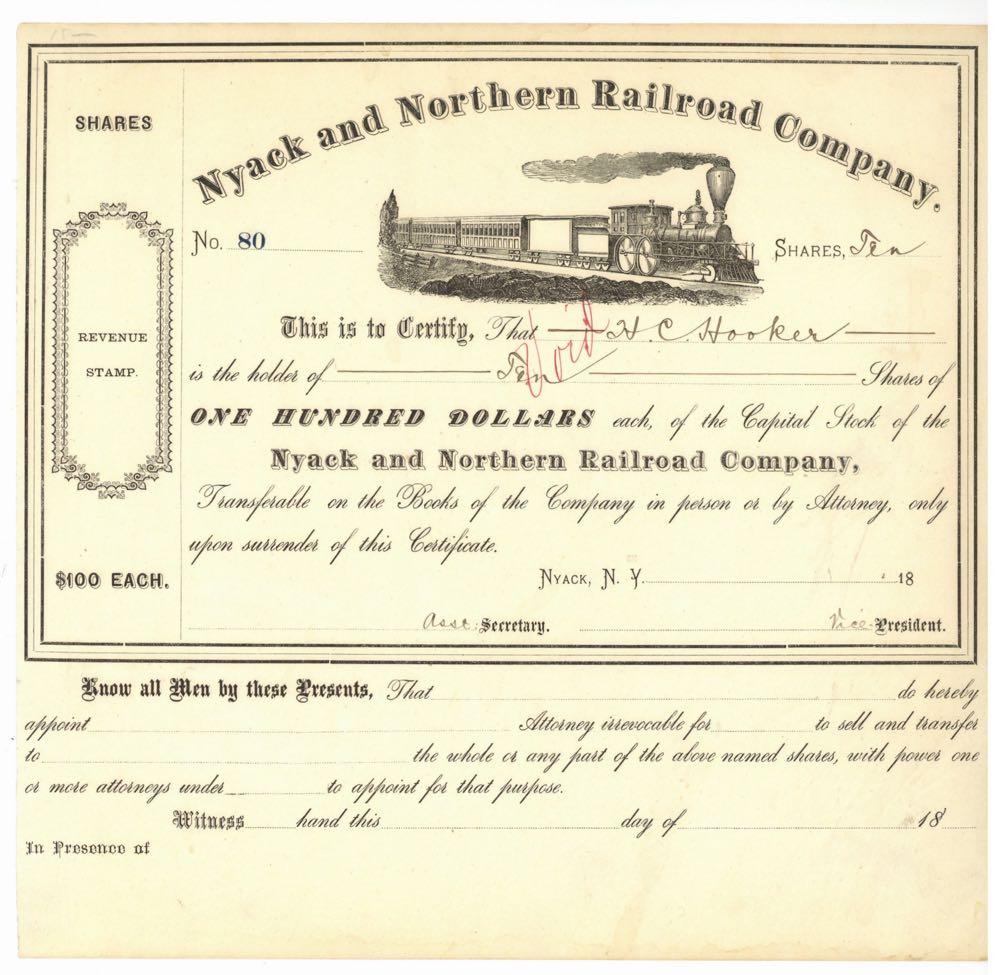 15—
SHARES
Nyack and Northern Railroad Company.
No. 80
SHARES, Ten
This is to Certify, That H. C. Hooker
Void
is the holder of Ten Shares of
ONE HUNDRED DOLLARS each, of the Capital Stock of the
Nyack and Northern Railroad Company,
Transferable on the Books of the Company in person or by Attorney, only
upon surrender of this Certificate.
REVENUE
STAMP.
$100 EACH.
NYACK, N. Y. 18
Asst. Secretary. Vice President.
Know all Men by these Presents, That do hereby
appoint Attorney irrevocable for to sell and transfer
to the whole or any part of the above named shares, with power one
or more attorneys under to appoint for that purpose.
Witness hand this day of 18
In Presence of